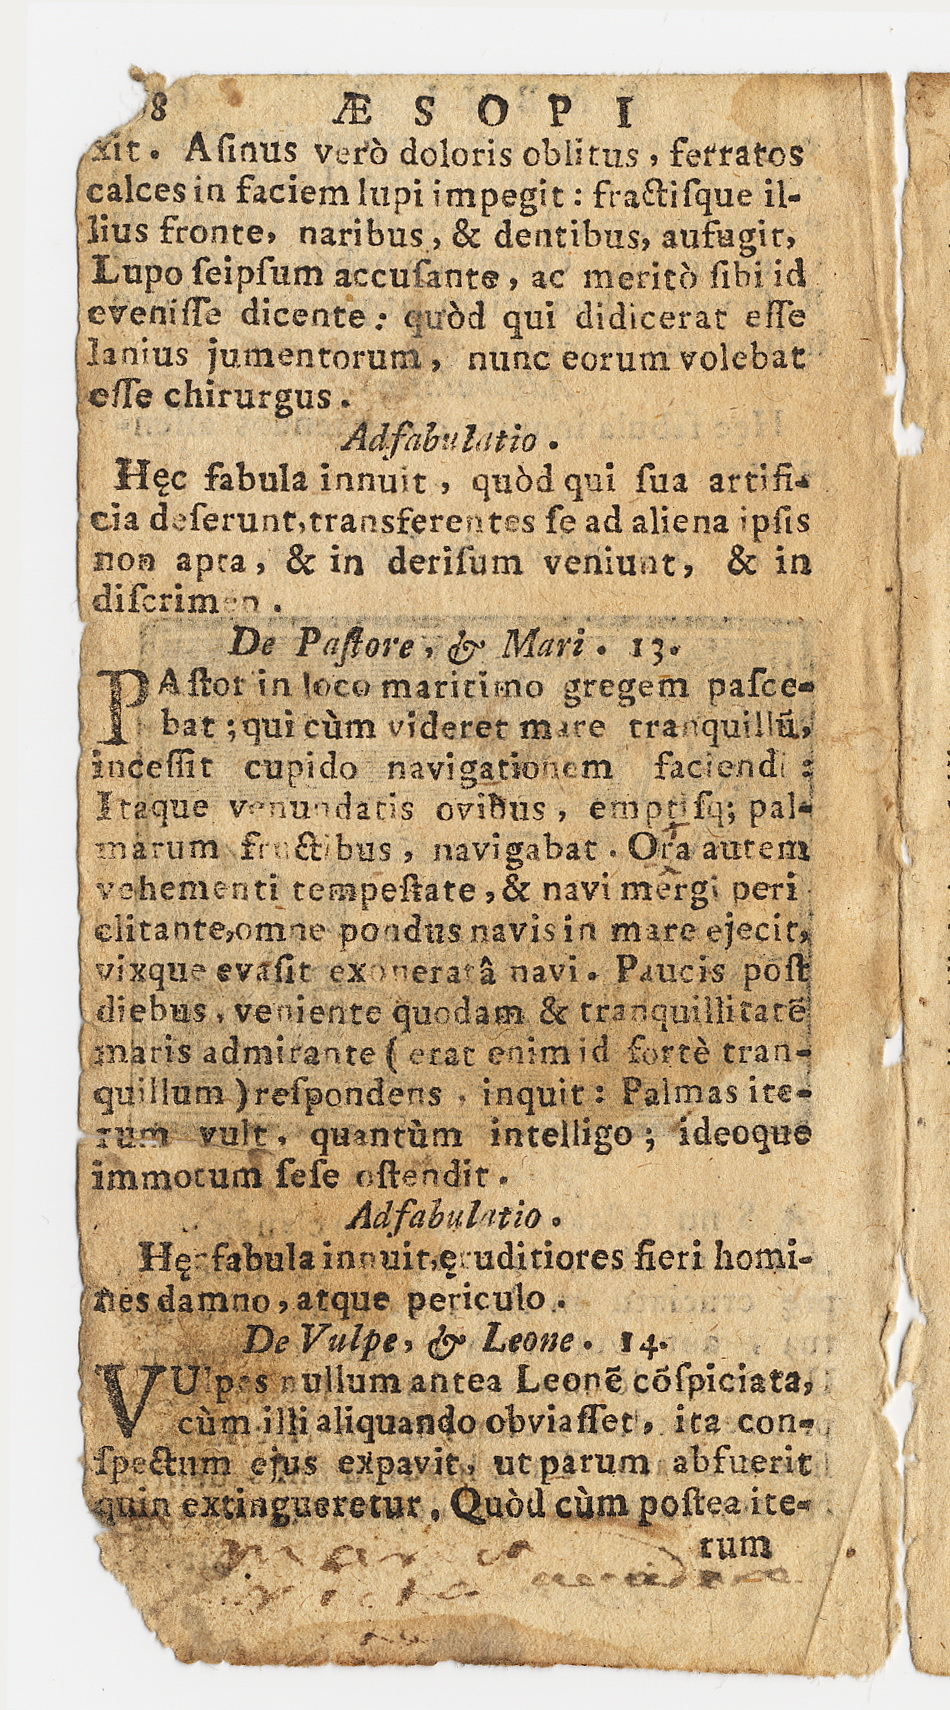 8 ÆSOPI
xit. Aſinus verò doloris oblitus, ferratos
calces in faciem lupi impegit: fractiſque il-
lius fronte, naribus, & dentibus, aufugit,
Lupo ſeipſum accuſante, ac meritò ſibi id
eveniſſe dicente: quòd qui didicerat eſſe
lanius jumentorum, nunc eorum volebat
eſſe chirurgus.
Adfabulatio.
Hęc fabula innuit, quòd qui ſua artifi-
cia deſerunt, transferentes ſe ad aliena ipſis
non apta, & in deriſum veniunt, & in
diſcrimen.
De Paſtore, & Mari. 13.
PAſtor in loco maritimo gregem paſce-
bat; qui cùm videret mare tranquillũ,
inceſſit cupido navigationem faciendi:
Itaque venundatis ovibus, emptiſq; pal-
marum fructibus, navigabat. Orta autem
vehementi tempeſtate, & navi mergi peri
clitante, omne pondus navis in mare ejecit,
vixque evaſit exoneratâ navi. Paucis poſt
diebus, veniente quodam & tranquillitatẽ
maris admirante (erat enim id fortè tran-
quillum) reſpondens, inquit: Palmas ite-
rum vult, quantùm intelligo; ideoque
immotum ſeſe oſtendit.
Adfabulatio.
Hęc fabula innuit, ęruditiores fieri homi-
nes damno, atque periculo.
De Vulpe, & Leone. 14.
VUlpes nullum antea Leonẽ cõſpiciata,
cùm illi aliquando obviaſſet, ita con-
ſpectum ejus expavit, ut parum abfuerit
quin extingueretur. Quòd cùm poſtea ite-
rum